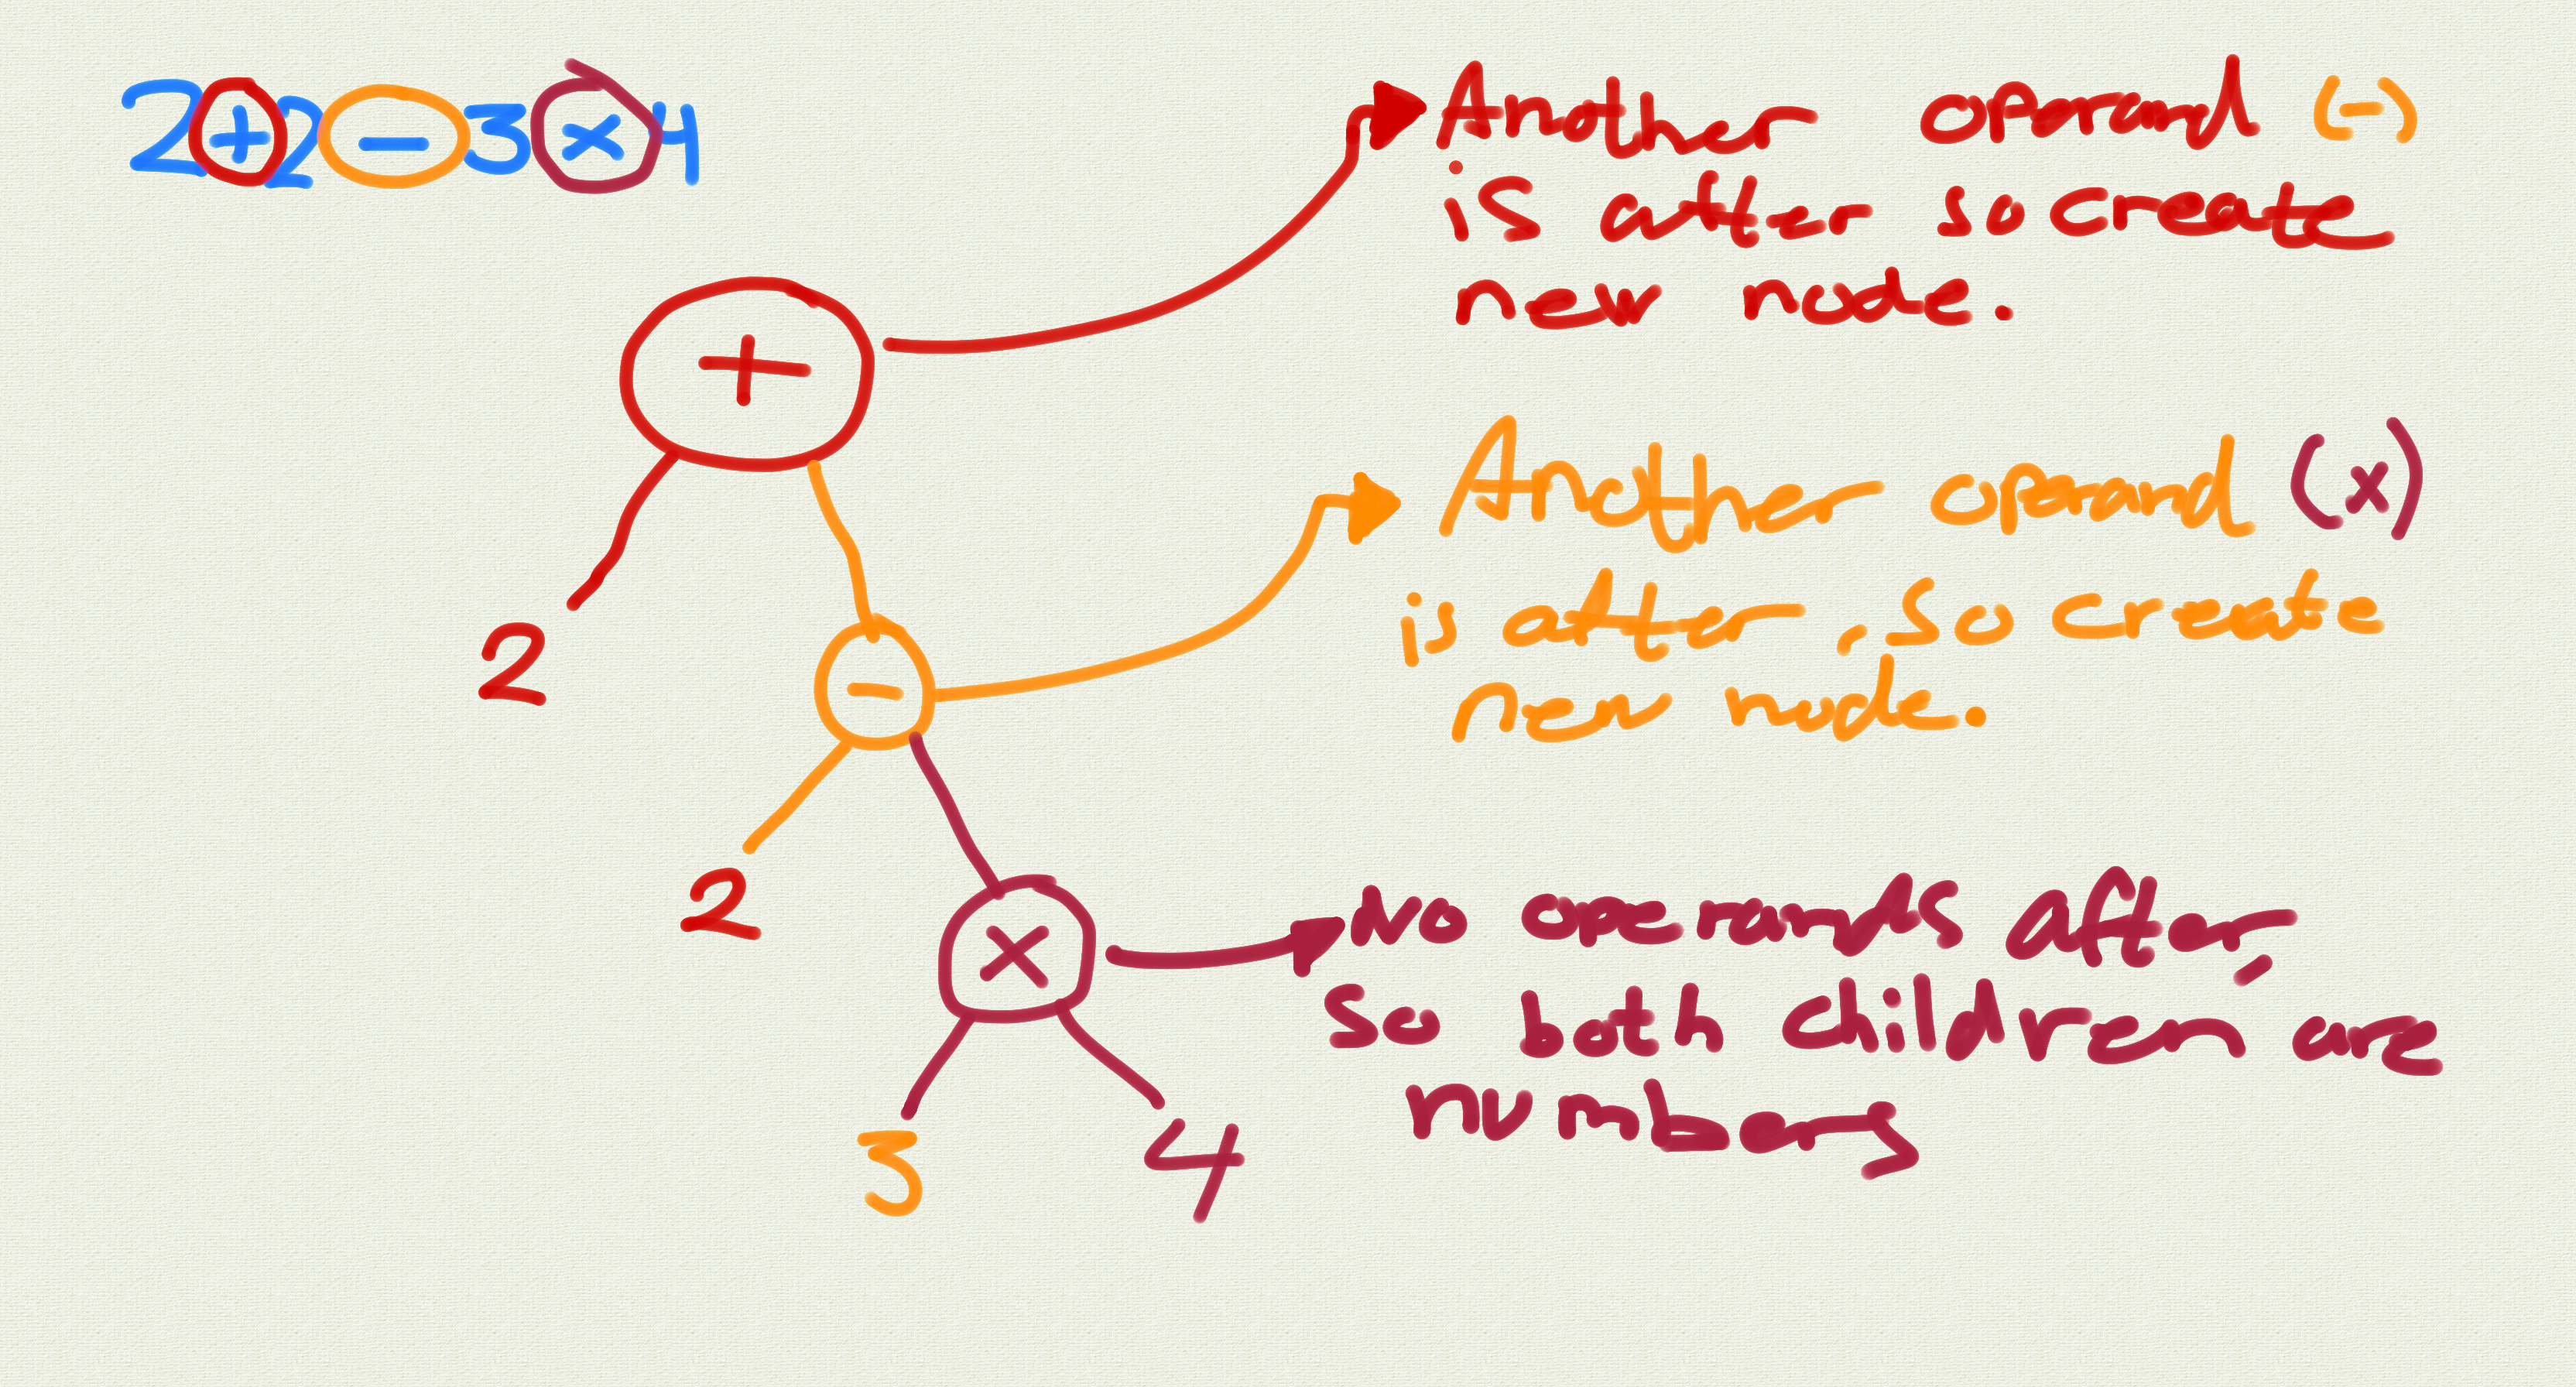 2+2-3×4
Another operand (-)
is after so create
new node.
+
Another operand (x)
is after, so create
new node.
2
-
2
No operands after,
so both children are
numbers
×
3
4